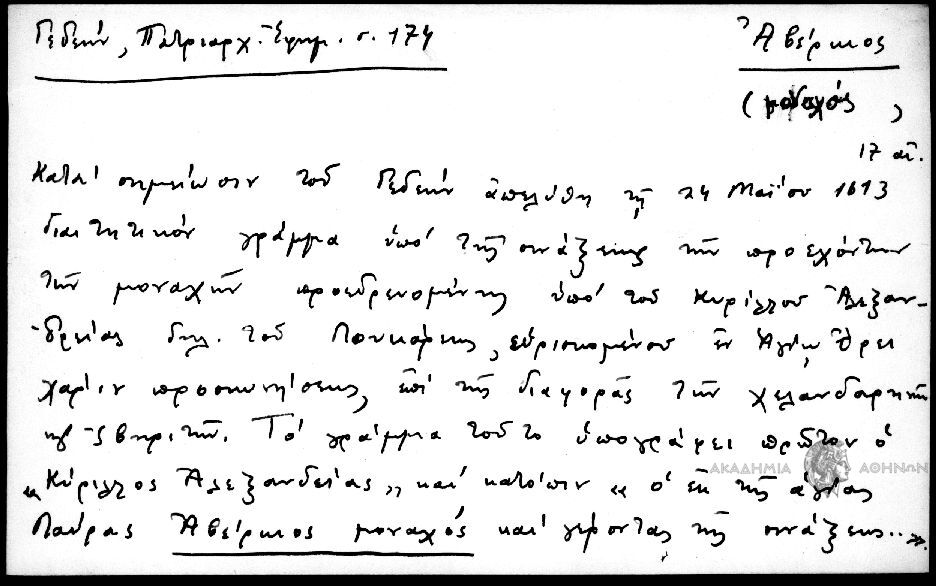 Γεδεών, Πατριαρχ. Ἐφημ. σ. 174
Ἀβέρκιος
(μοναχός)
17 αἰ.
Κατὰ σημείωσιν τοῦ Γεδεὼν ἀπελύθη τῇ 24 Μαΐου 1613
διαιτητικὸν γράμμα ὑπὸ τῆς συνάξεως τῶν προεχόντων
τῶν μοναχῶν προεδρευομένης ὑπὸ τοῦ Κυρίλλου Ἀλεξαν-
δρείας δηλ. τοῦ Λουκάρεως, εὑρισκομένου ἐν Ἁγίῳ Ὄρει
χάριν προσκυνήσεως, ἐπὶ τῆς διαφορᾶς τῶν Χελανδαρηνῶν
καὶ Ἰβηριτῶν. Τὸ γράμμα τοῦτο ὑπογράφει πρῶτον ὁ
«Κύριλλος Ἀλεξανδρείας» καὶ κατόπιν «ὁ ἐκ τῆς ἁγίας
Λαύρας Ἀβέρκιος μοναχὸς καὶ γέροντας τῆς συνάξεως..».
ΑΚΑΔΗΜΙΑ ΑΘΗΝΩΝ